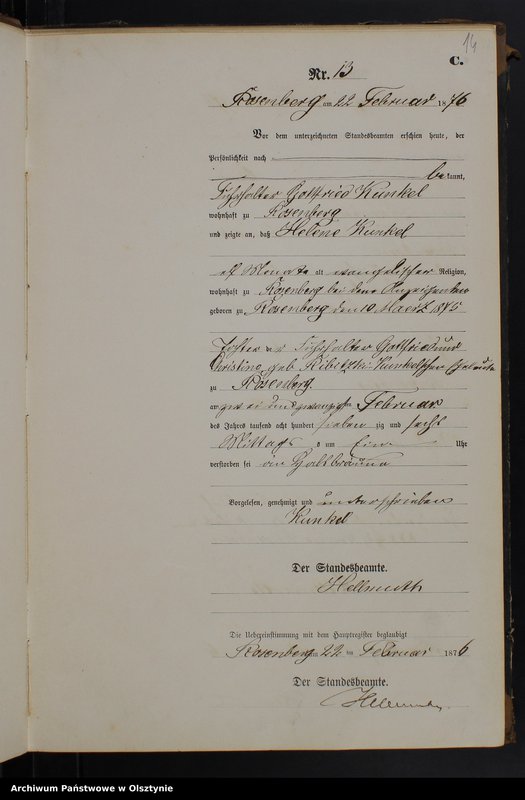 14
C.
Nr. 13
Rosenberg am 22 Februar 1876
Vor dem unterzeichneten Standesbeamten erschien heute, der
Persönlichkeit nach
bekannt,
Gottfried Kunkel
wohnhaft zu Rosenberg
und zeigte an, daß Helene Kunkel
elf Monate alt evangelischer Religion,
wohnhaft zu Rosenberg bei dem Anzeigenden
geboren zu Rosenberg den 10 Maerz 1875
Tochter der Gottfried und
Christine geb Kunkelschen Eheleute
zu Rosenberg
am zwei und zwanzigsten Februar
des Jahres tausend acht hundert sieben zig und sechs
Mittags um Ein Uhr
verstorben sei an Halsbräune
Vorgelesen, genehmigt und unterschrieben
Kunkel
Der Standesbeamte.
Hellmuth
Die Uebereinstimmung mit dem Hauptregister beglaubigt
Rosenberg am 22 ten Februar 1876
Der Standesbeamte.
Hellmuth
Archiwum Państwowe w Olsztynie